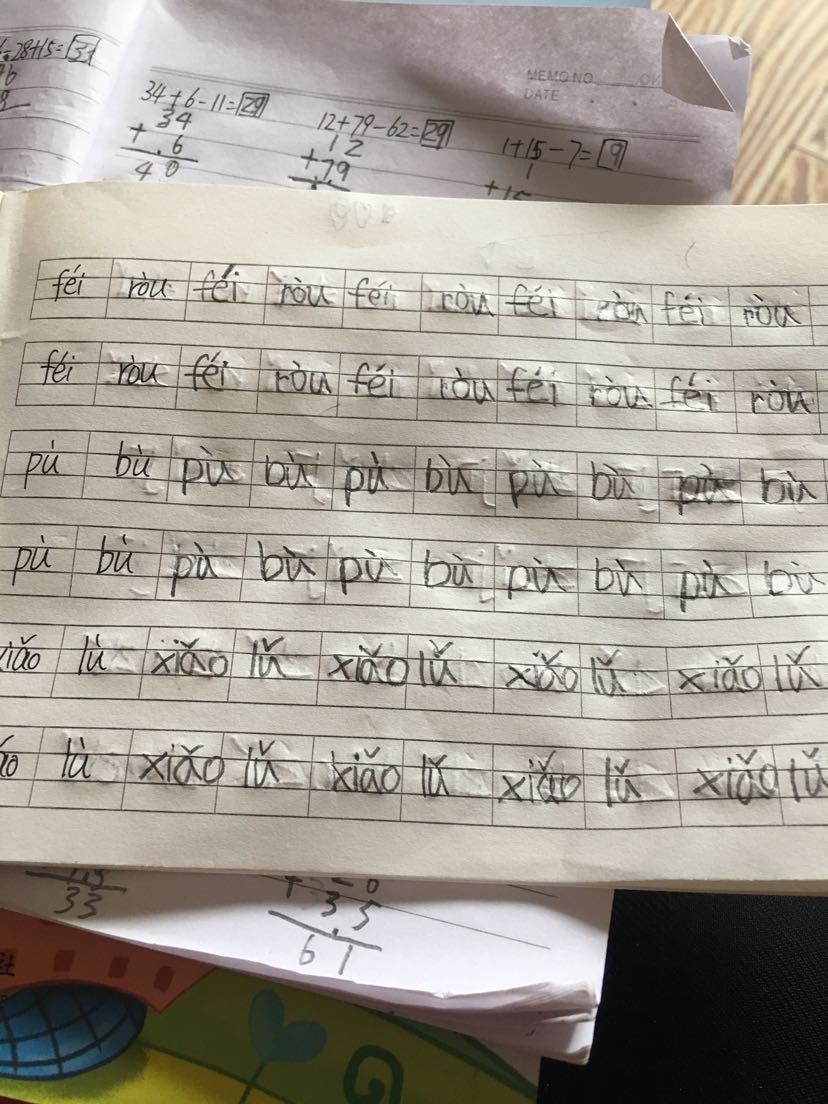 -28+15=31
MEMO NO.
DATE
34+6-11=29
34
+ 6
40
12+79-62=29
12
+79
1+15-7=9
1
+15
féi ròu féi ròu féi ròu féi ròu féi ròu
féi ròu féi ròu féi ròu féi ròu féi ròu
pù bù pù bù pù bù pù bù pù bù
pù bù pù bù pù bù pù bù pù bù
xiǎo lǜ xiǎo lǚ xiǎo lǚ xiǎo lǚ xiǎo lǚ
lù xiǎo lǚ xiǎo lǚ xiǎo lǚ xiǎo lǚ
33
35
61